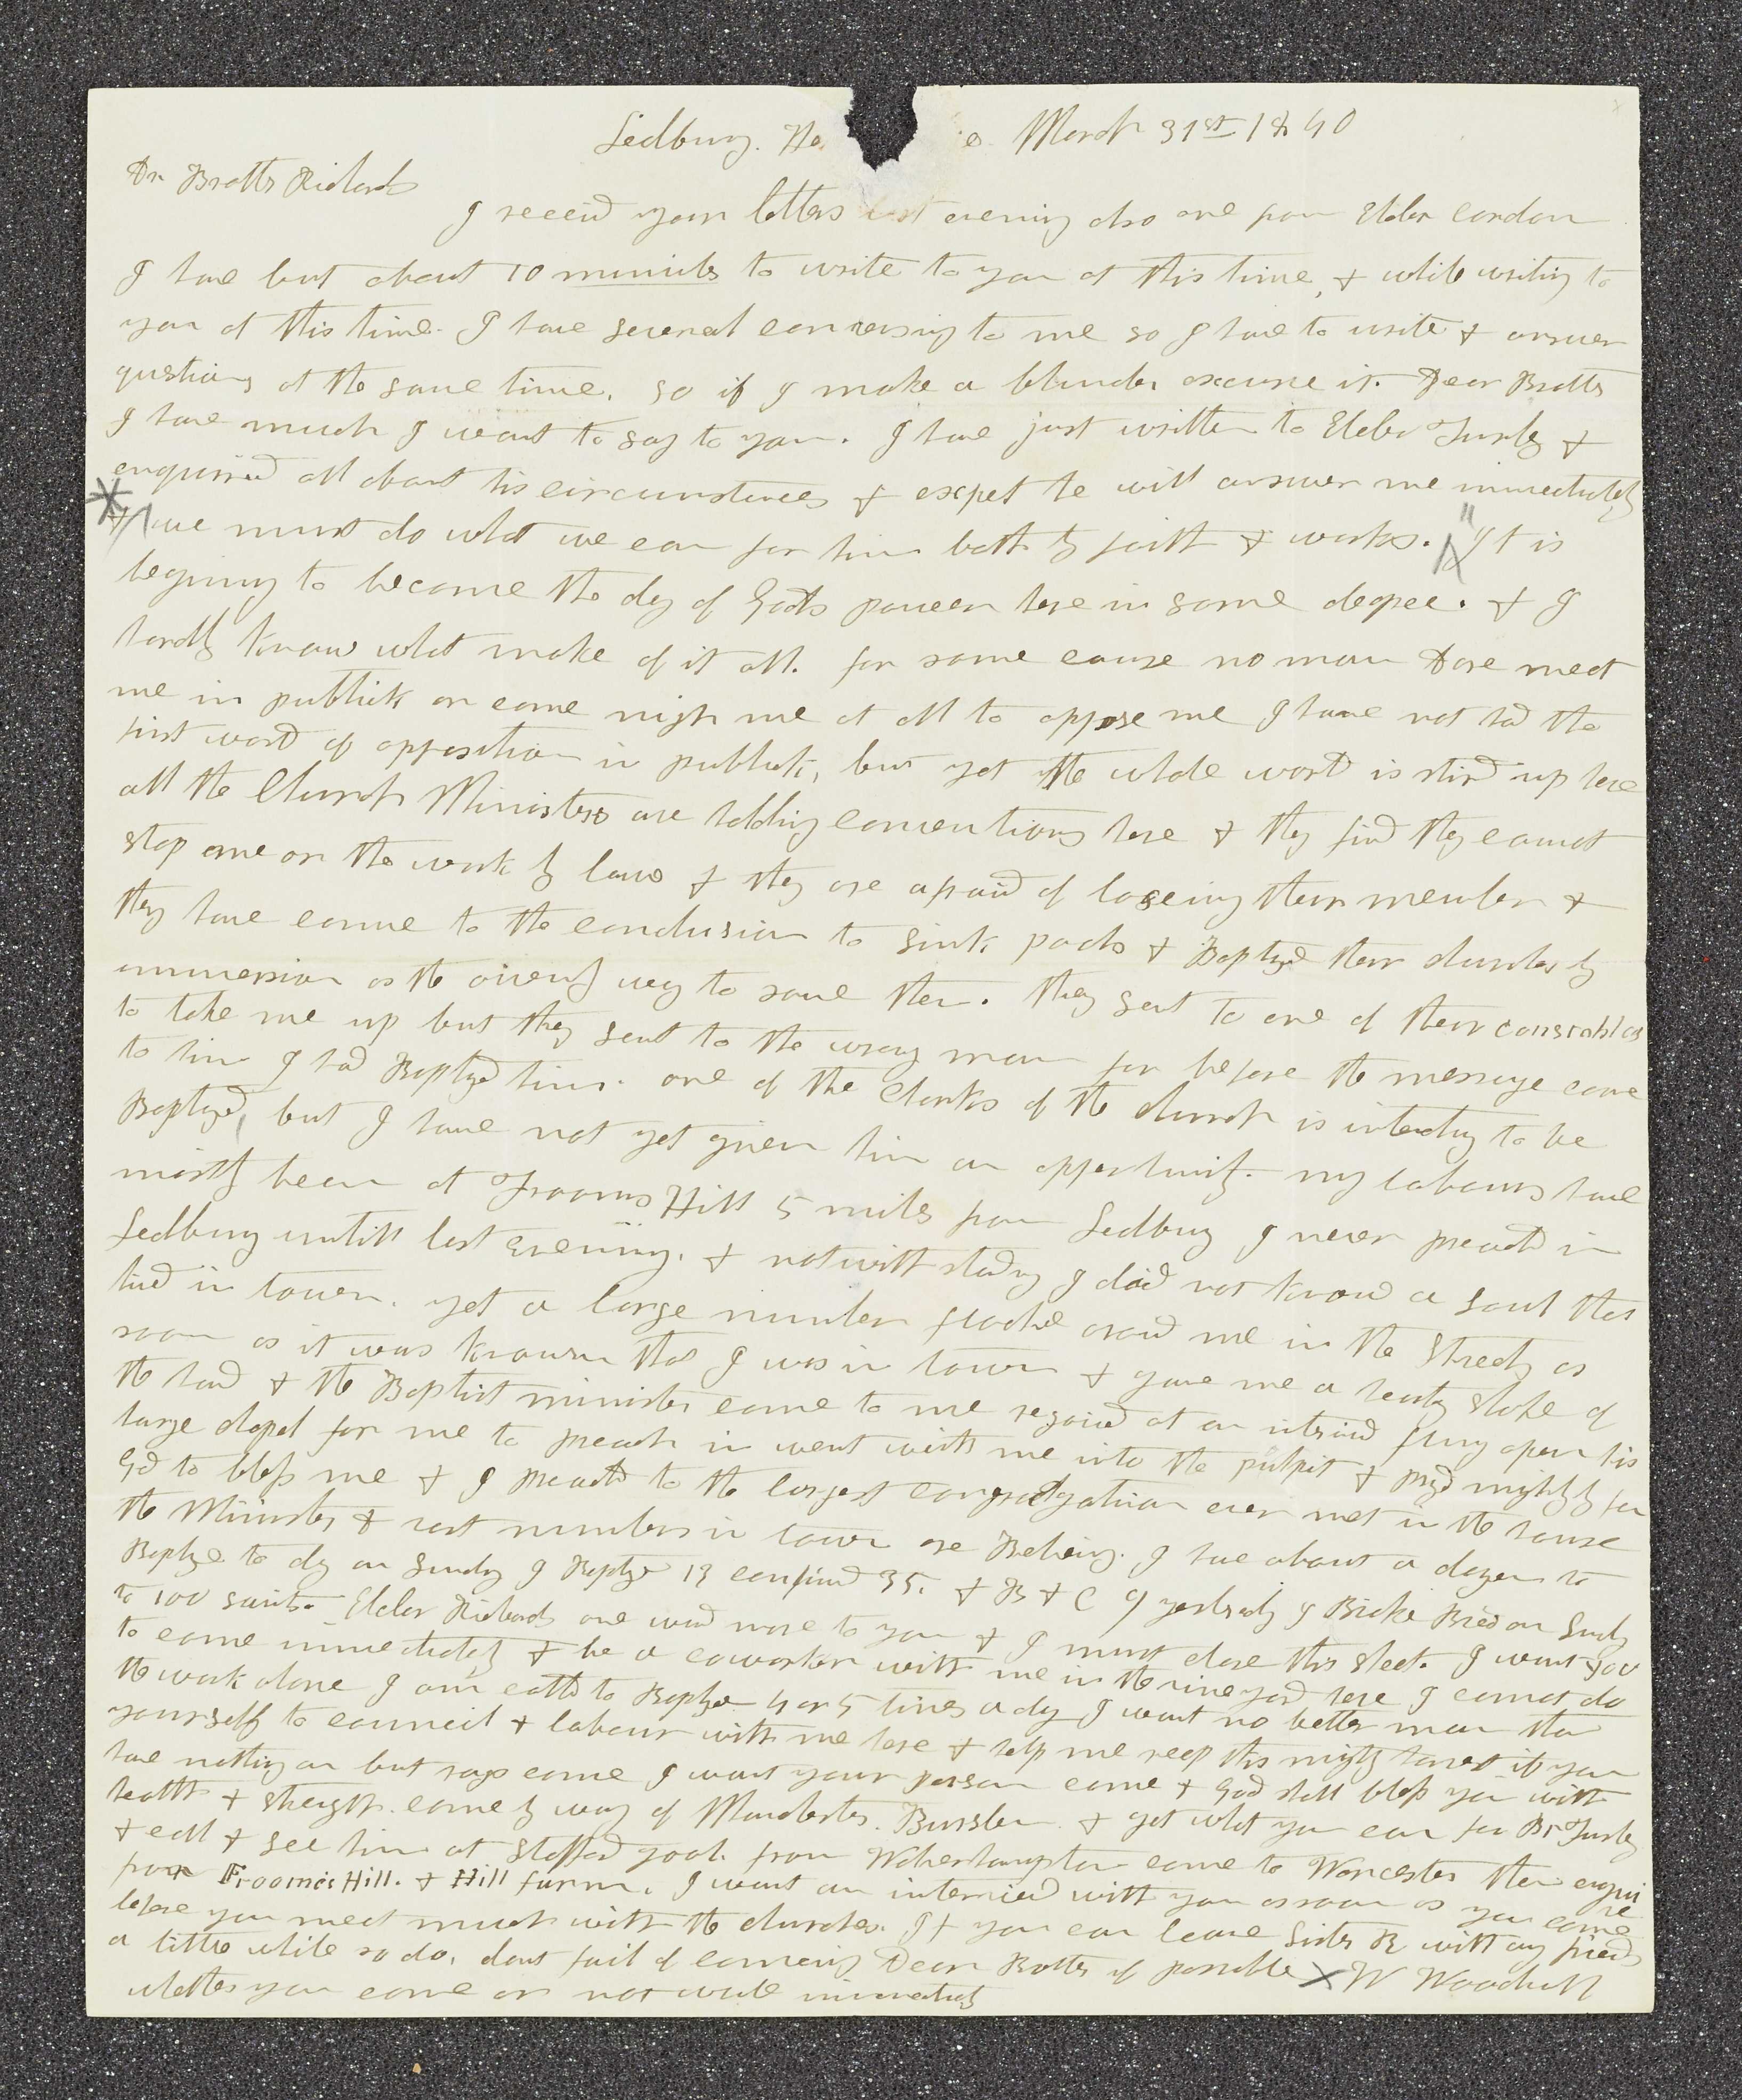 Ledbury. He e March 31st 1840
Dr Brother Richards
I receivd your letters last evening also one from Elder Cordon
I have but about 10 minuits to write to you at this time, & while writing to
you at this time. I have several conversing to me so I have to write & answer
questions at the same time, so if I make a blunder excuse it. Dear Brother
I have much I want to say to you. I have just written to Elder Turly &
enquired all about his circumstances & expet he will answer me immediately
& we must do what we can for him both by faith & works. It is
begining to become the day of Gods power here in some degree. & I
hardly know what make of it all. for some cause no man Dare meet
me in publick or come nigh me at all to oppose me I have not had the
first word of opposition in publick, but yet the whole world is stird up here
all the Church Ministers are holding conventions here & they find they cannot
stop me or the work by law & they are afraid of loseing their member &
they have come to the conclusion to sink pools & Baptize their churches by
immersion as the ownly way to save them. they sent to one of their constables
to take me up but they sent to the wrong man for before the message came
to him I had Baptized him. one of the Clarks of the church is intending to be
Baptized, but I have not yet given him an opportunity. my labours have
mostly been at Frooms Hill 5 miles from Ledbury I never preachd in
Ledbury untill last evening. & notwithstading I did not know a soul that
livd in town. yet a large number flocked around me in the Streets as
soon as it was known that I was in town & gave me a hearty shake of
the hand & the Baptist minister came to me regoicd at an interview flung open his
large chapel for me to preach in went with me into the pulpit & prayd mightyly for
God to bless me & I preachd to the largest congregation ever met in the house
the Minister & vast numbers in town are Believing. I have about a dozen to
Baptize to day on Sunday I Baptzed 13 confirmd 35. & B & C 9 yesterday I Broke Bread on Sunday
to 100 saints. Elder Richards one word more to you & I must close this sheet. I want you
to come immediately & be a coworker with me in the vineyard here I cannot do
the work alone I am calld to Baptze 4 or 5 times a day I want no better man than
yourself to council & labour with me here & help me reep this mighty harvest if you
have nothing on but rags come I want your person come & God shall bless you with
health & strength. come by way of Manchester. Burslem. & get what you can for Br Turly
& call & see him at Stafford goal. from Wolverhampton come to Worcester then enquire
for Frooms Hill. & Hill farm. I want an interview with you as soon as you come
before you meet much with the churches. If you can leave Sister R with my friends
a little while so do, dont fail of comeing Dear Brother if possible X W Woodruff
whether you come or not write immediately